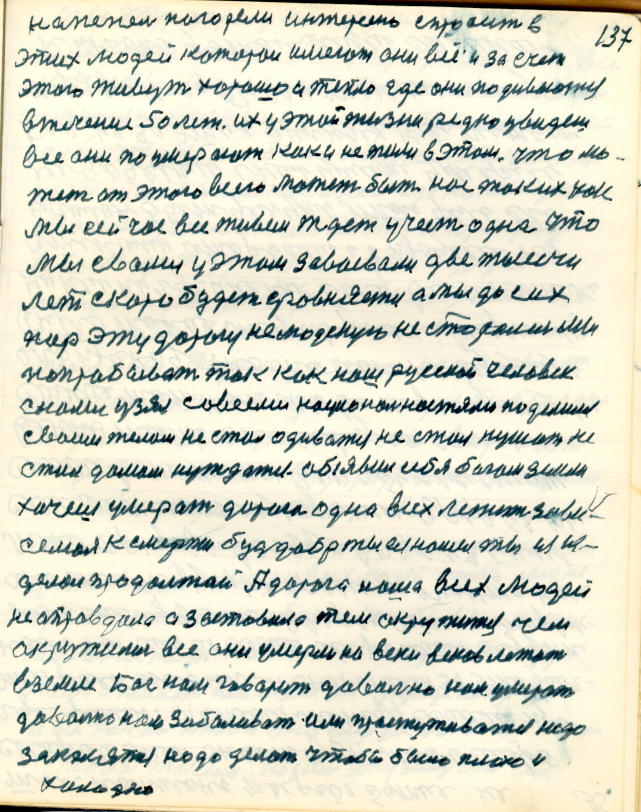 137
напенел погорели интересно спросить в
этих людей которои имеют они всё и за счет
этого живут хорошо и тепло где они подиваются
втечение 50 лет. их у этой жизни редко увидеш
все они поумерают как и не жили в этом. что мо-
жет от этого всего может быть нас таких как
мы сейчас все живем ждет участ одна что
мы свами у этом завоевали две тысечи
лет скоро будет сровнятся а мы до сих
пор эту дорогу не людскую не старались мы
попробыват так как наш русской человек
снами узял совсеми националностями поделился
своим телом не стал одиватся не стал кушат не
стал домом нуждатся. обявил себя богом земли
хочеш умерат дорога одна всех лежат зави-
семоя к смерти будь добр ты ел нашли ты из из-
делол продолжай А дорога наша всех людей
не оправдала а заставила тем окружится чем
окружились все они умерли на веки веков лежат
вземле Бог нам гаварит давално нам умерат
давално нам заболиват или простуживатся надо
закалятся надо делат чтобы было плохо и
холодно